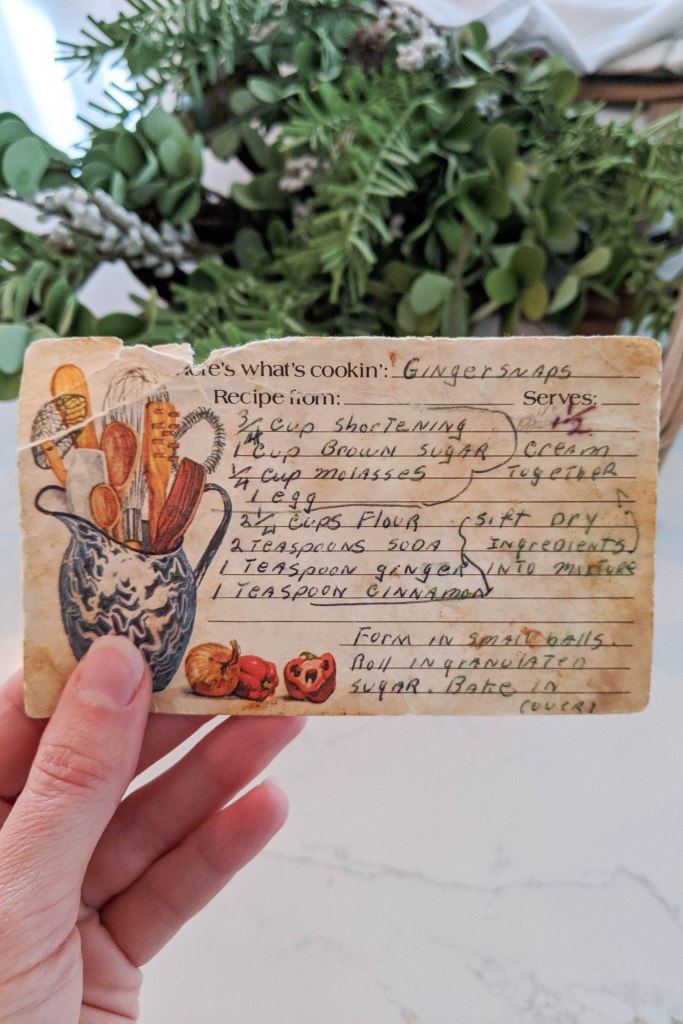 here's what's cookin': Gingersnaps
Recipe from: Serves:
3/4 cup shortening
1 cup Brown sugar Cream
1/4 cup molasses Together
1 egg
2 1/4 cups Flour Sift Dry
2 Teaspoons soda Ingredients
1 Teaspoon ginger into mixture
1 Teaspoon cinnamon
Form in small balls.
Roll in granulated
sugar. Bake in
(over)